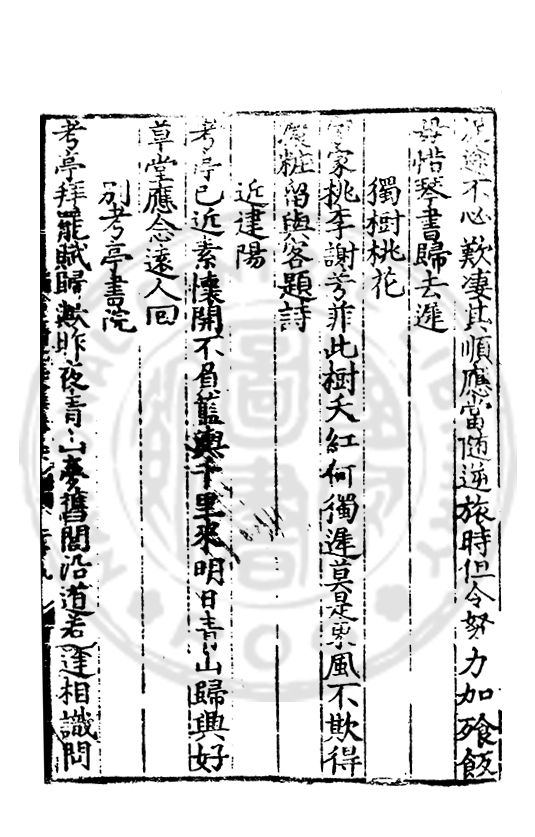 途不必歎淒其順應當随逆旅時但令努力加飱飯
毋惜琴書歸去遲
獨樹桃花
家桃李謝芳菲此樹夭紅何獨遲莫是東風不欺得
粧留與客題詩
近建陽
考亭已近素懷開不負藍輿千里來明日青山歸興好
草堂應念遠人回
別考亭書院
考亭拜罷賦歸歟昨夜青山夢舊閭沿道若逢相識問